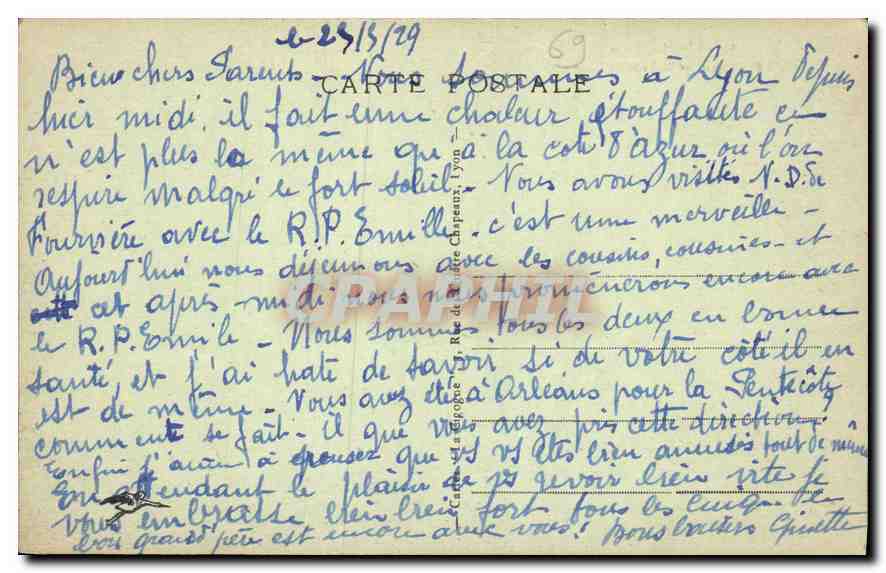 le 23/5/29
69
CARTE POSTALE
Bien chers Parents - Nous sommes à Lyon depuis
hier midi, il fait une chaleur étouffante ce
n'est plus la même que à la cote d'azur où l'on
respire malgré le fort soleil - Nous avons visités N.D. de
Fourvière avec le R.P. Emille. c'est une merveille -
Aujourd'hui nous déjeunons avec les cousins, cousines - et
cet après-midi nous nous promènerons encore avec
le R.P. Emile - Nous sommes tous les deux en bonne
santé, et j'ai hate de savoir si de votre côté il en
est de même - Vous avez été à Orléans pour la Pentecôte
comment se fait-il que vous avez pris cette direction?
Enfin j'aime à penser que vs vs êtes bien amusés tout de même
En attendant le plaisir de vs revoir bien vite je
vous embrasse bien bien fort tous les cinq
bon grand père est encore avec vous! Bons baisers Ginette
Cartes "La Cigogne", Rue de Chapeaux, Lyon
CPAPHIL